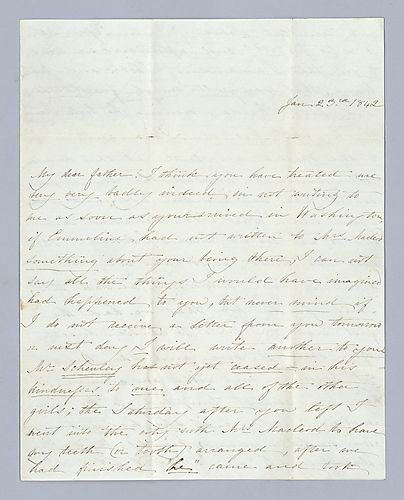 Jan 23rd 1842
My dear father, I think you have treated me
very very badly indeed, in not writing to
me as soon as you arrived in Washington,
if Emmeline had not written to Mrs Macleod
something about your being there, I can not
say all the things I would have imagined
had happened to you, but never mind if
I do not receive a letter from you tomorrow
or next day I will write another to you
Mr Schenley has not yet ceased in his
kindness to me and all of the other
girls; the Saturday after you left I
went into the city with Mr. Macleod to have
my teeth (or tooth) arranged, after we
had finished "he" came and took